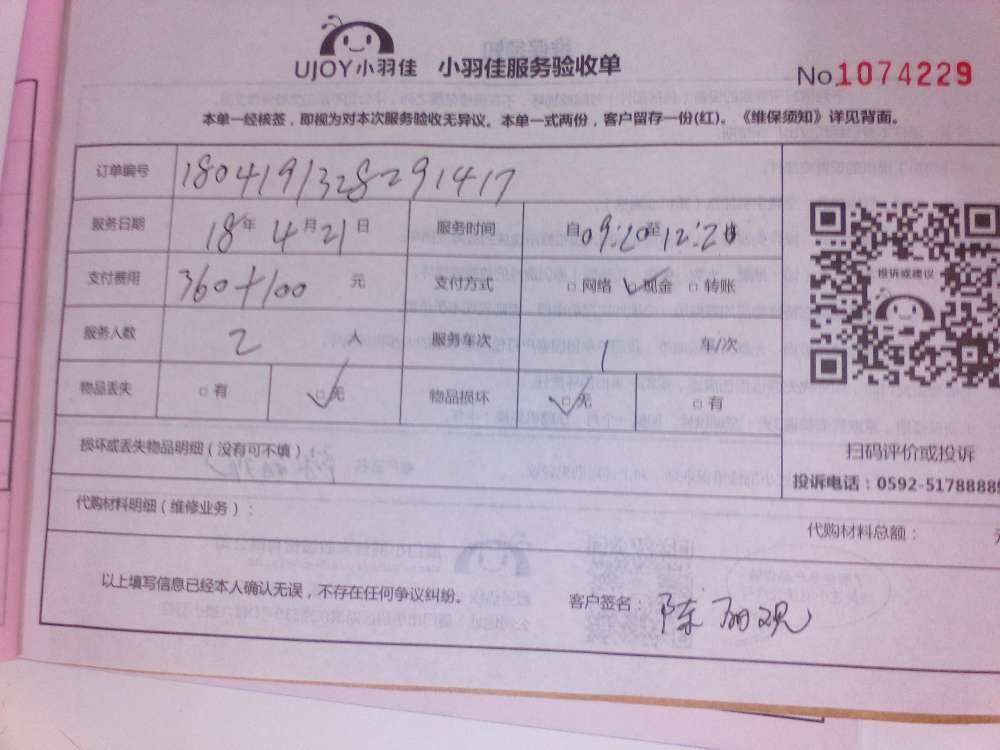 UJOY小羽佳 小羽佳服务验收单 No1074229
本单一经核签，即视为对本次服务验收无异议。本单一式两份，客户留存一份(红)。《维保须知》详见背面。
订单编号 180419132829 1417
服务日期 18年 4月21日 服务时间 自09:20至12:20
支付费用 360+100 元 支付方式 □网络 ✓□现金 □转账
投诉或建议
服务人数 2 人 服务车次 1 车/次
物品丢失 □有 ✓□无 物品损坏 ✓□无 □有
损坏或丢失物品明细（没有可不填）
扫码评价或投诉
投诉电话：0592-5178888
代购材料明细（维修业务）：
代购材料总额：
以上填写信息已经本人确认无误，不存在任何争议纠纷。 客户签名：陈丽观